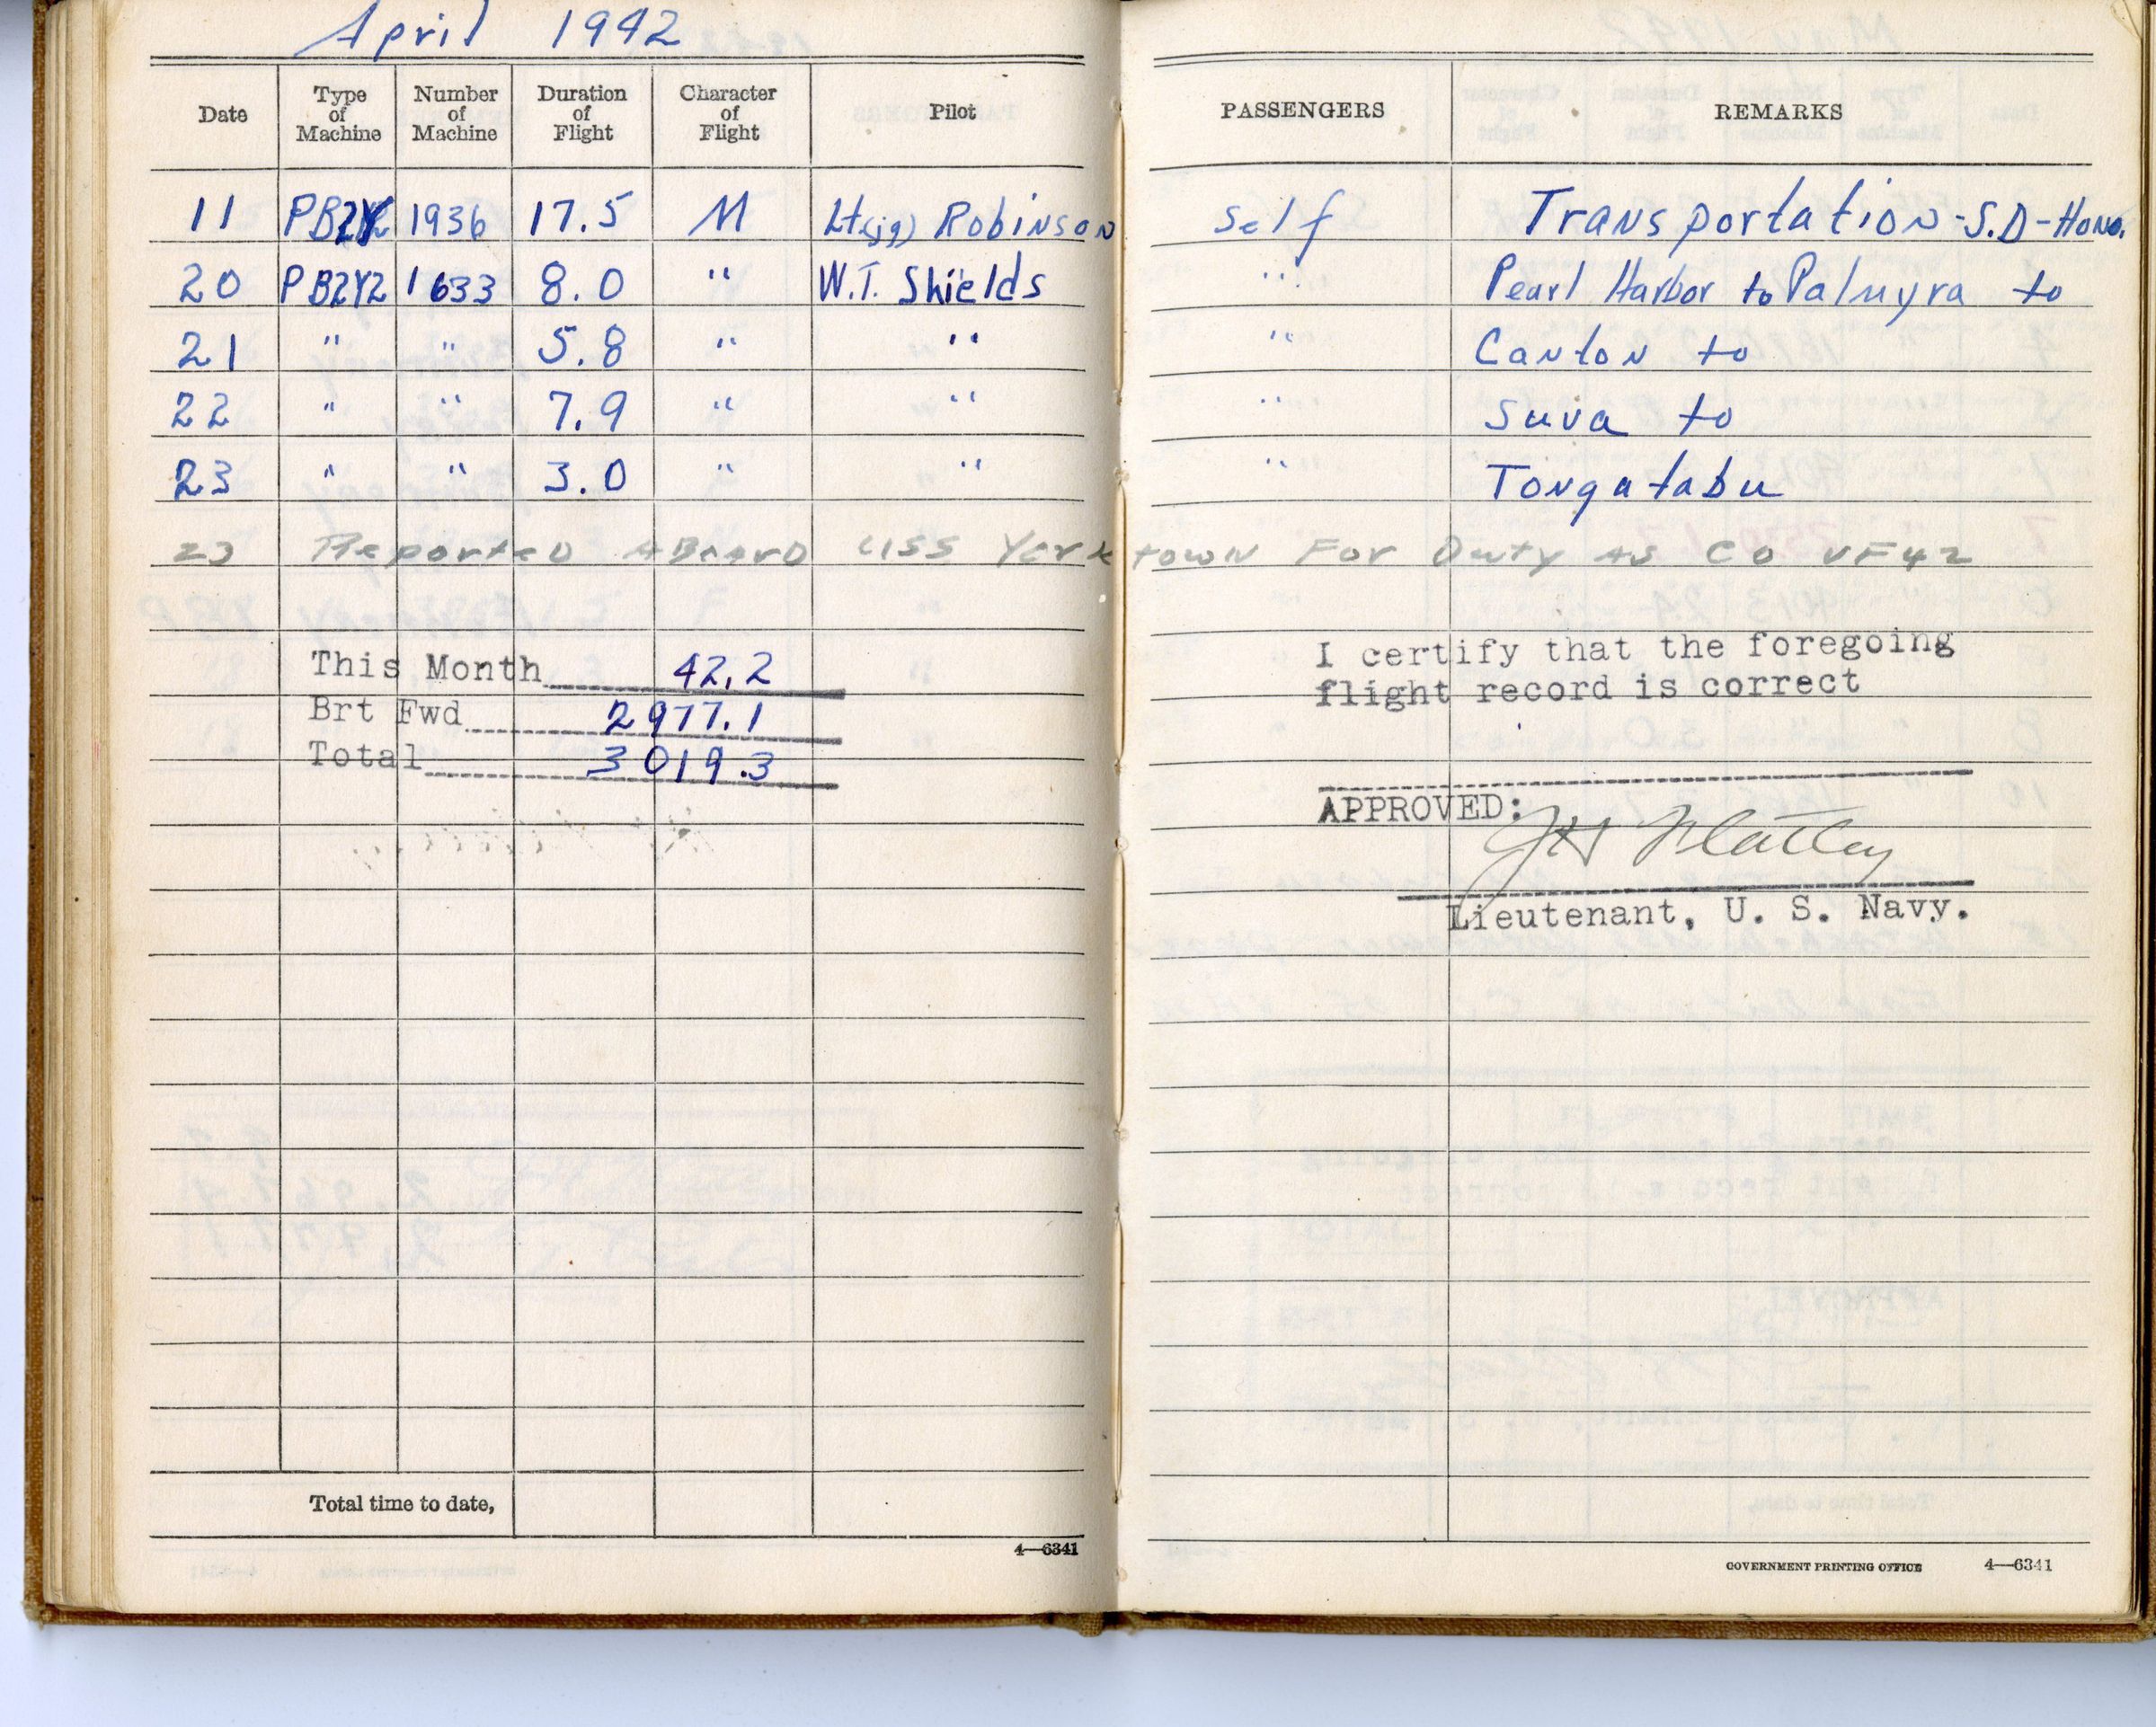 April 1942
Date Type of Machine Number of Machine Duration of Flight Character of Flight Pilot PASSENGERS REMARKS
11 PB2Y2 1936 17.5 M Lt(jg) Robinson Self Transportation-S.D-Hono.
20 PB2Y2 1633 8.0 " W.T. Shields " Pearl Harbor to Palmyra to
21 " " 5.8 " " " Canton to
22 " " 7.9 " " " Suva to
23 " " 3.0 " " " Tongatabu
23 Reported Aboard USS Yorktown For Duty As CO VF42
This Month 42.2
Brt Fwd 2977.1
Total 3019.3
I certify that the foregoing
flight record is correct
APPROVED:
JH Flatley
Lieutenant, U. S. Navy.
Total time to date,
4—6341
GOVERNMENT PRINTING OFFICE 4—6341